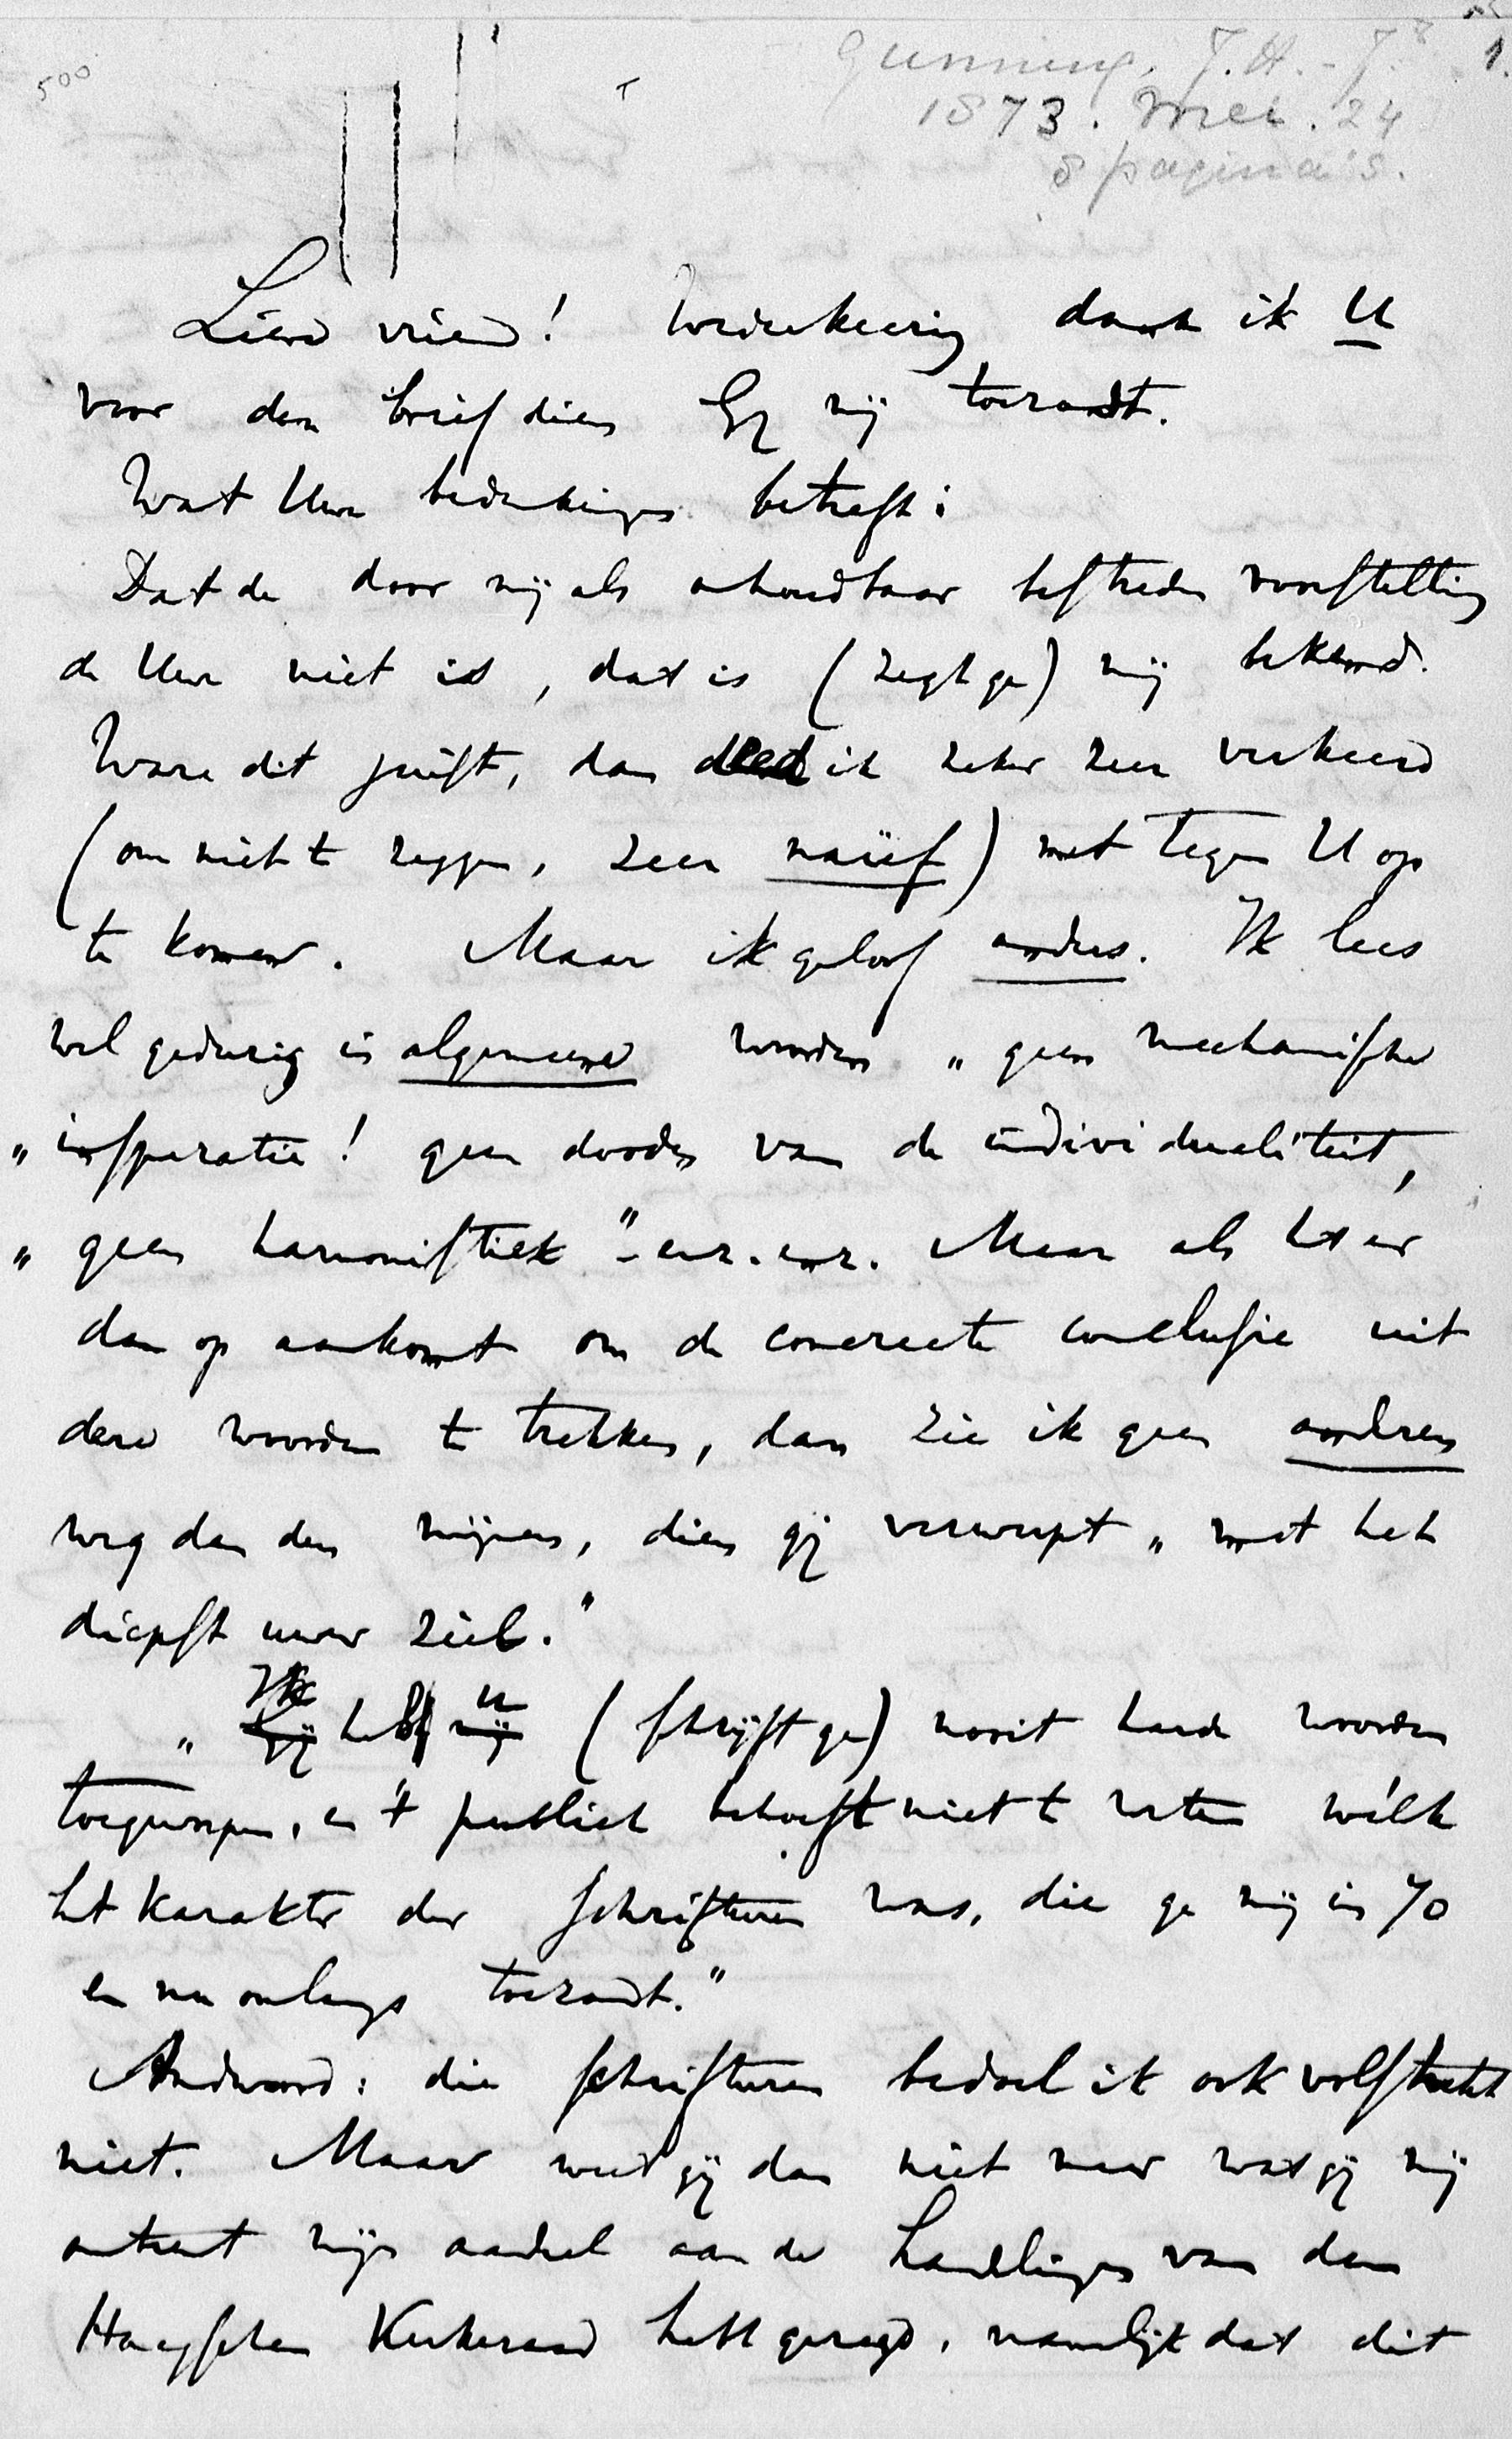 500
Gunning, J.H. - Jr
1.
1873. Mei. 24
8 pagina's.
Lieve vriend! Wederkeerig dank ik U
voor den brief dien Gij mij toezondt.
Wat Uwe bedenkingen betreft:
Dat de door mij als onhoudbaar bestreden voorstelling
de Uwe niet is, dat is (zegt ge) mij bekend.
Ware dit juist, dan deed ik zeker zeer verkeerd
(om niet te zeggen, zeer naïef) met tegen U op
te komen. Maar ik geloof anders. Ik lees
wel gedurig in algemeene woorden „geen mechanische
„inspiratie! geen dooden van de individualiteit,
„geen harmonistiek" - enz. enz. Maar als het er
dan op aankomt om de concreete conclusie uit
deze woorden te trekken, dan zie ik geen anderen
weg dan den mijnen, dien gij verwerpt „met het
diepst uwer ziel."
„Ik heb u (schrijft ge) nooit harde woorden
toegeworpen, en 't publiek behoeft niet te weten wélk
het karakter der schrifturen was, die ge mij in 70
en nu onlangs toezondt."
Andwoord: die schrifturen bedoel ik ook volstrekt
niet. Maar weet gij dan niet meer wat gij mij
omtrent mijn aandeel aan de handelingen van den
Haagschen Kerkeraad hebt gezegd, namelijk dat dit